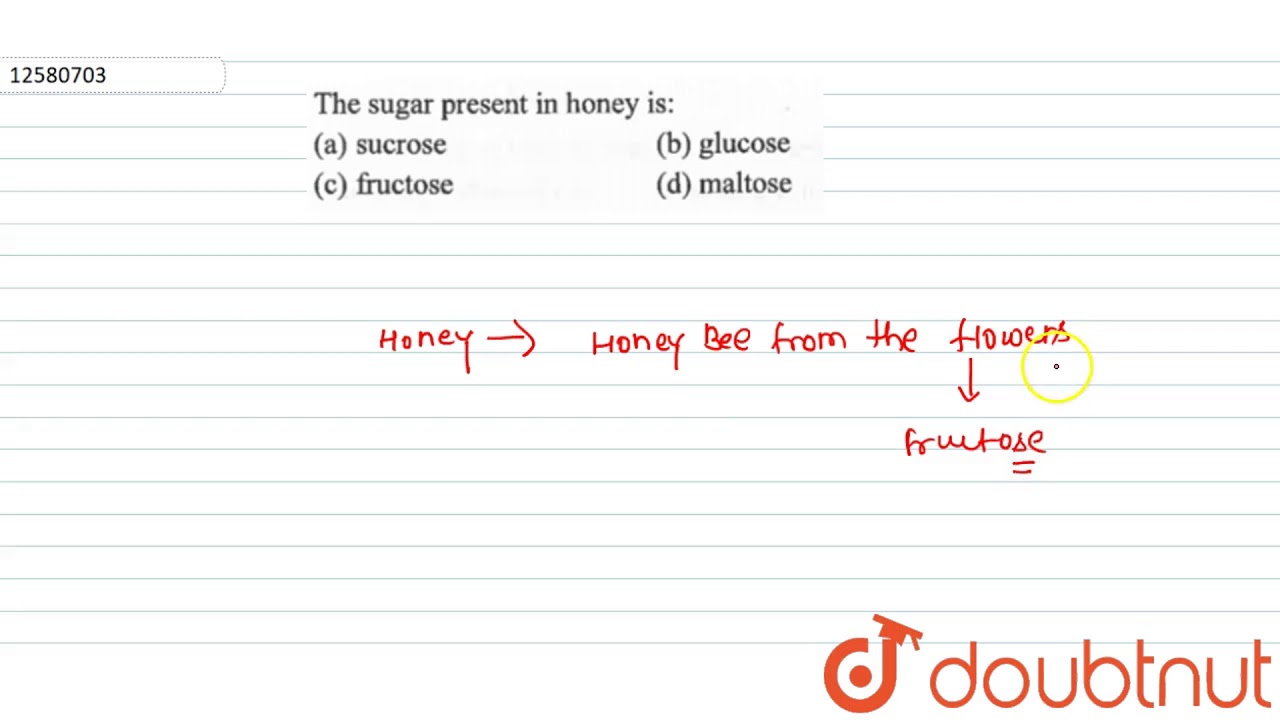 12580703
The sugar present in honey is:
(a) sucrose (b) glucose
(c) fructose (d) maltose
Honey → Honey Bee from the flowers
↓
fructose
doubtnut